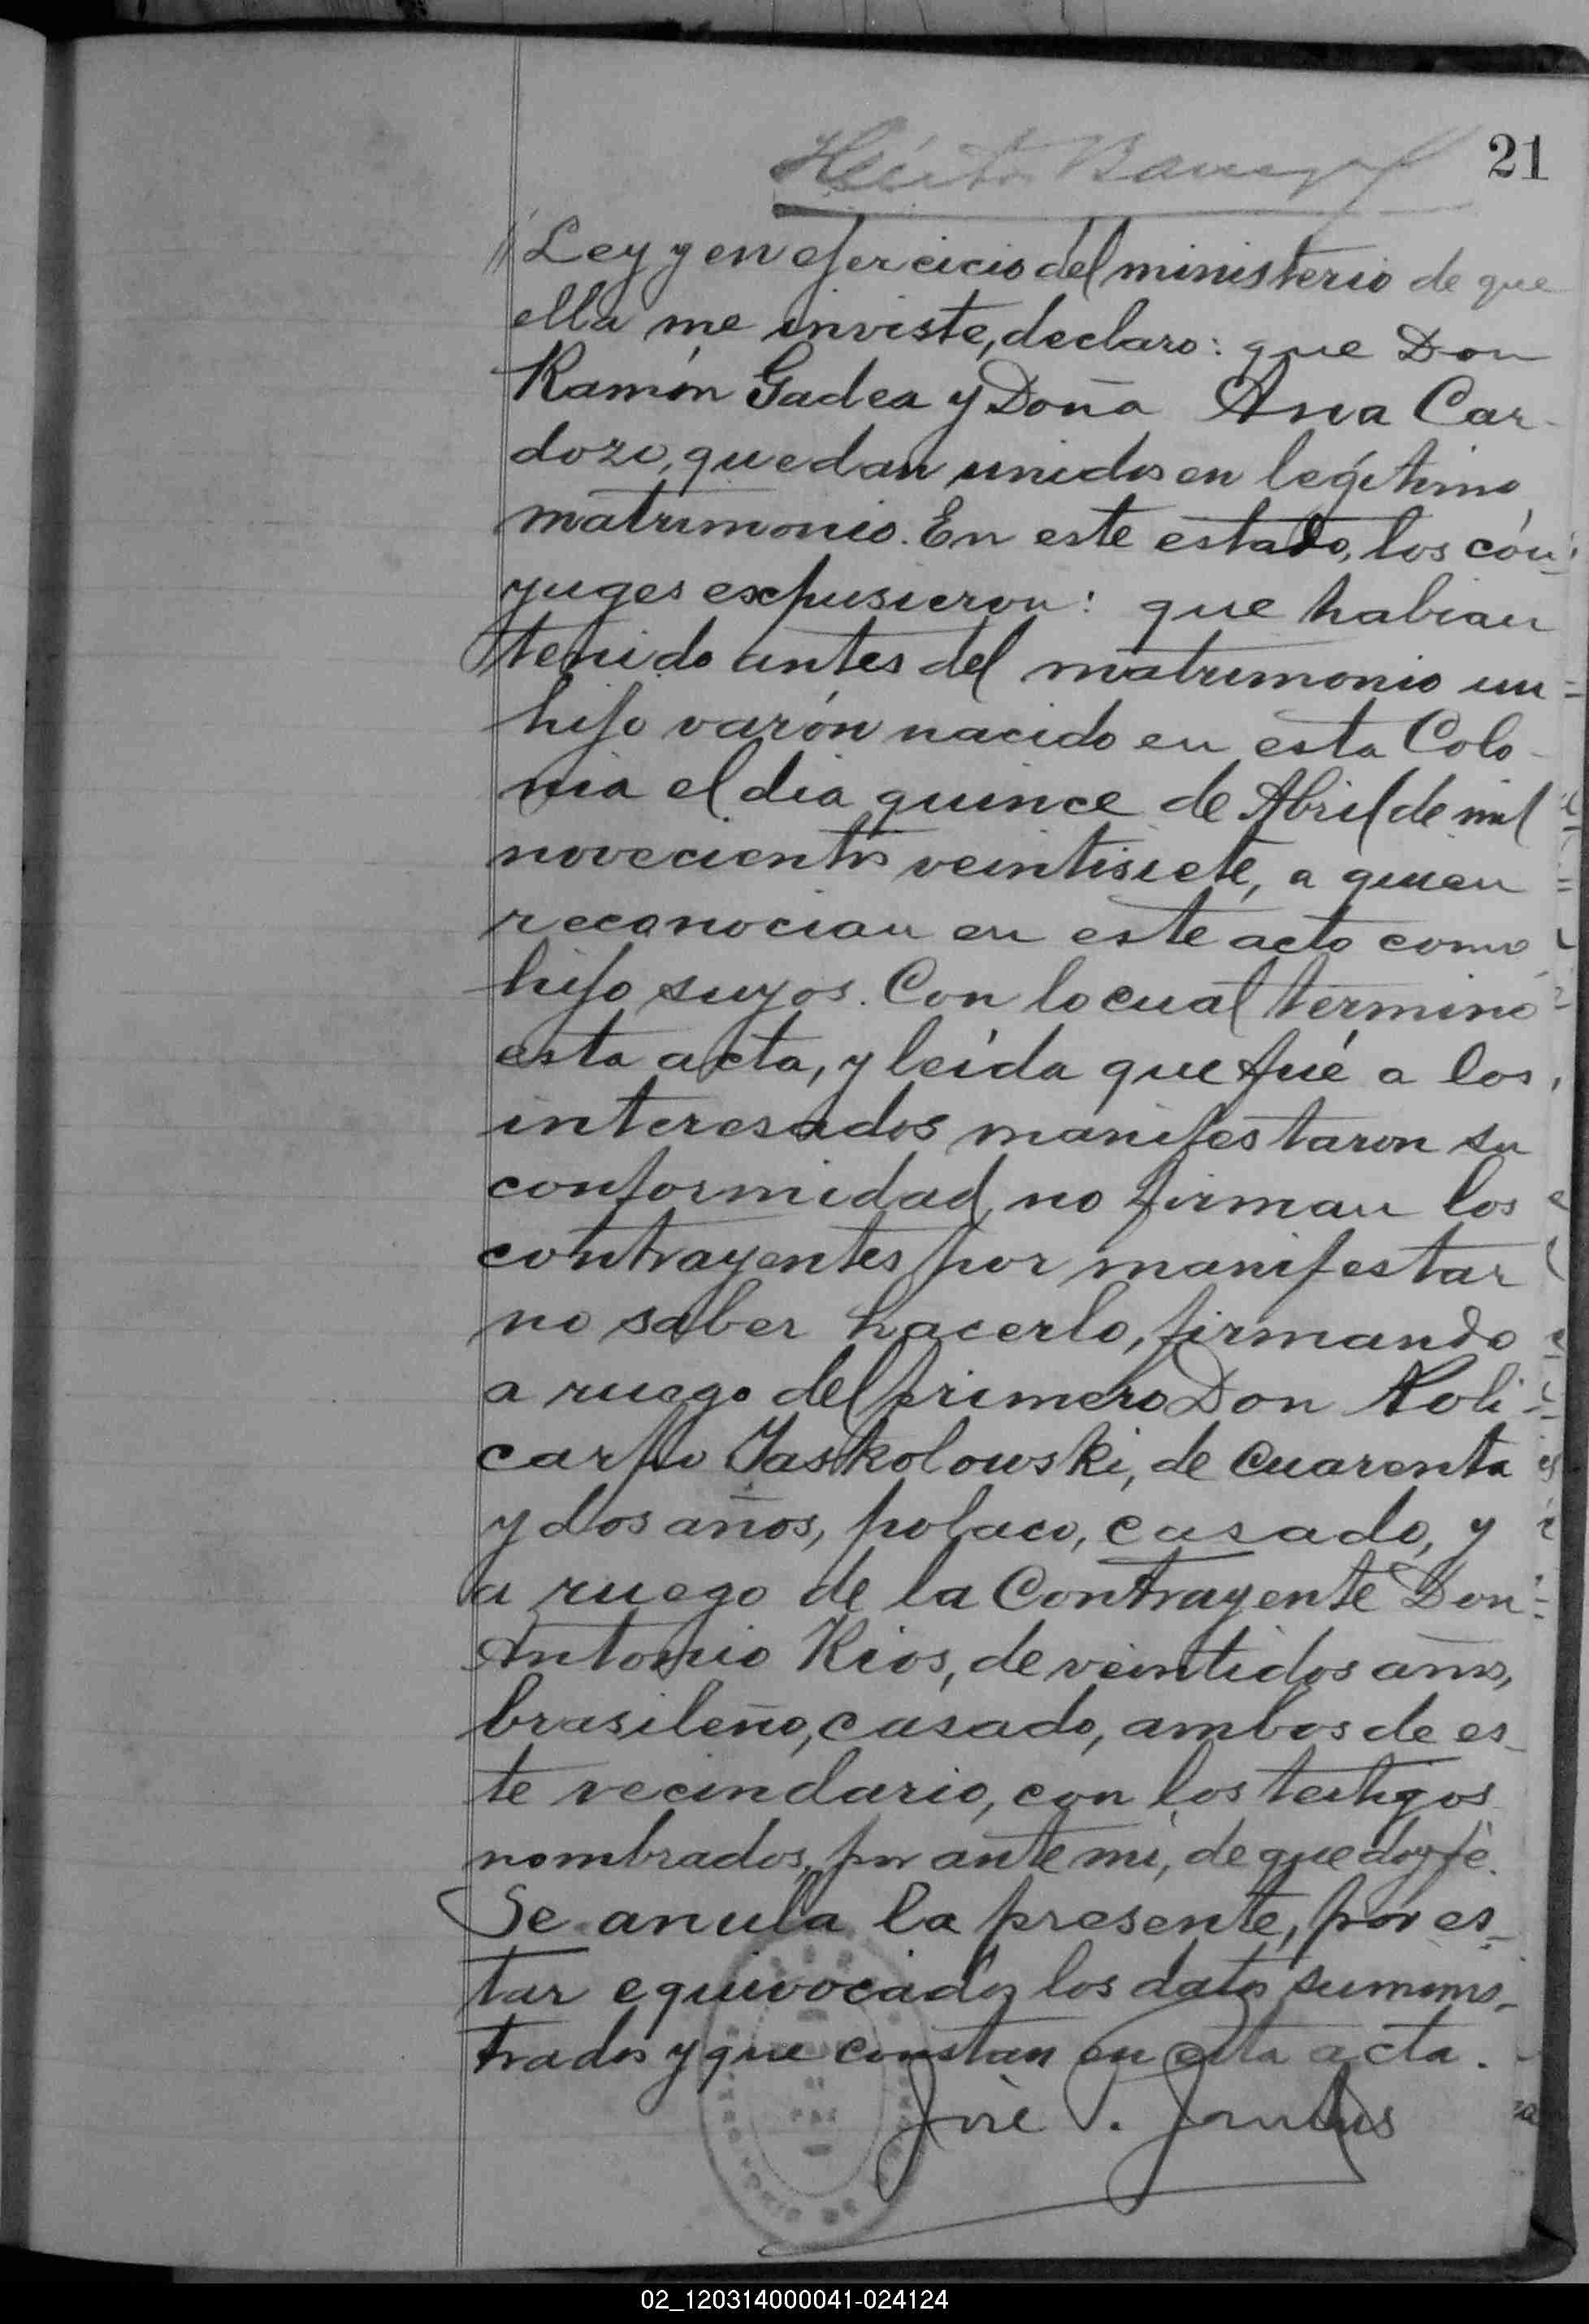 21
// Ley y en ejercicio del ministerio de que
ella me inviste, declaro: que Don
Ramón Gadea y Doña Ana Car-
dozo, quedan unidos en legítimo
matrimonio. En este estado, los cón-
yuges expusieron: que habian
tenido antes del matrimonio un
hijo varón nacido en esta Colo-
nia el dia quince de Abril de mil
novecientos veintisiete, a quien
reconocian en este acto como
hijo suyos. Con lo cual terminó
esta acta, y leída que fué a los
interesados manifestaron su
conformidad, no firman los
contrayentes por manifestar
no saber hacerlo, firmando
a ruego del primero Don Poli-
carpo Jaskolowski, de cuarenta
y dos años, polaco, casado, y
a ruego de la Contrayente Don
Antonio Rios, de veintidos años,
brasileño, casado, ambos de es-
te vecindario, con los testigos
nombrados, por ante mi, de que doy fé.
Se anula la presente, por es-
tar equivocados los datos suminis-
trados y que constan en esta acta.
José
02_120314000041-024124